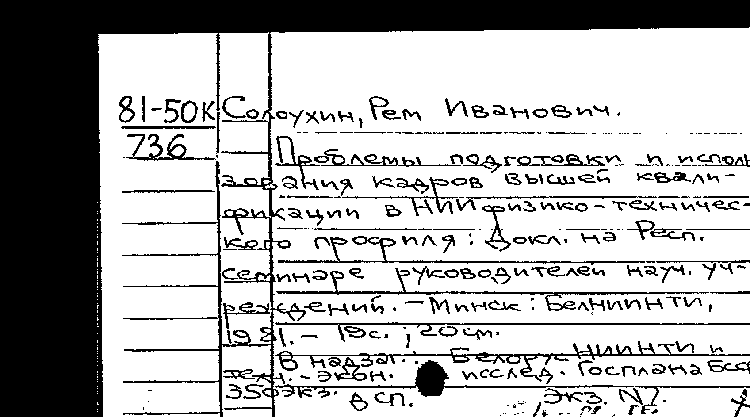 81-50К Солоухин, Рем Иванович.
736
Проблемы подготовки и исполь
зования кадров высшей квали-
фикации в НИИ физико-техничес-
кого профиля: Докл. на Респ.
семинаре руководителей науч. уч-
реждений. - Минск: БелНИИНТИ,
1981. - 19с.; 20см.
В надзаг.: Белорус НИИНТИ и
техн.-экон. исслед. Госплана БССР
350экз. ДСП. Экз. №